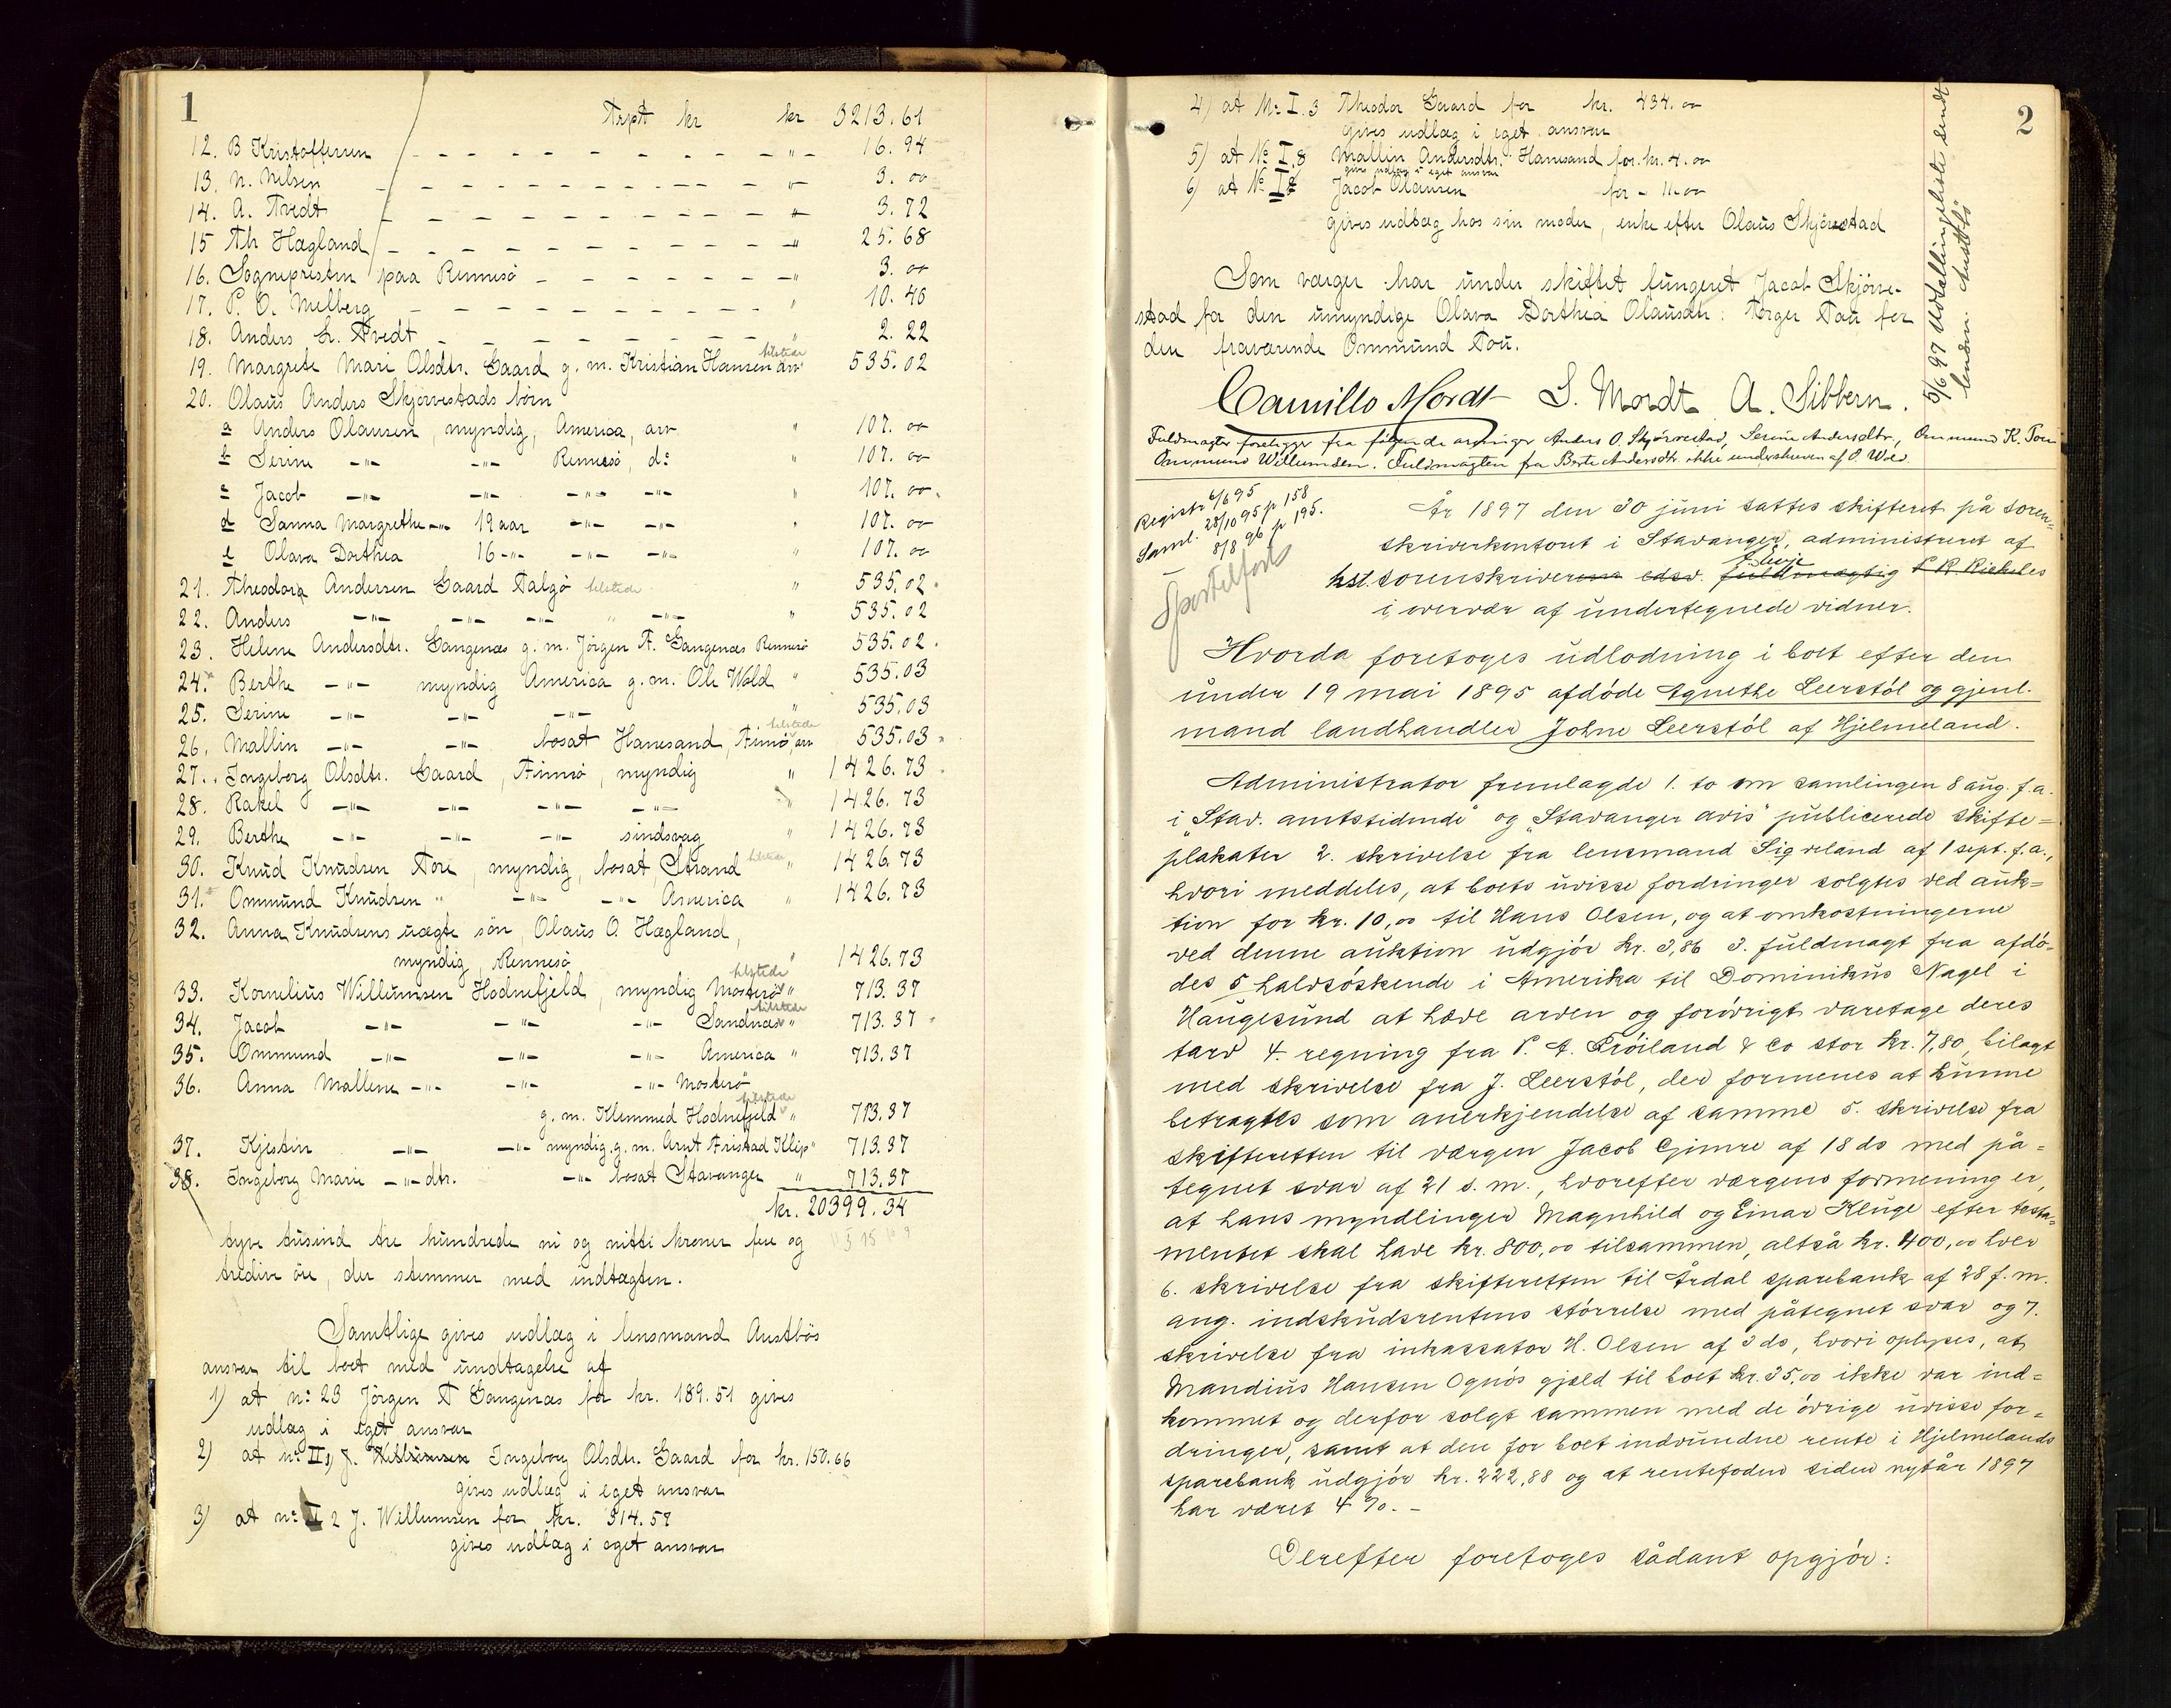 1
Trpt kr kr 3213.61
12. B Kristoffersen - - - - - - - - - " - 16.94
13. N. Nilsen - - - - - - - - - " 3. 00
14. A. Tvedt - - - - - - - - - " 3.72
15 Th Hægland - - - - - - - - - " 25.68
16. Sognepresten paa Rennesö - - - - - - - " 3. 00
17. P. O. Melberg - - - - - - - - - " 10. 46
18. Anders Tvedt - - - - - - - - " 2. 22
19. Margrete Mari Olsdtr. Gaard g. m. Kristian Hansen arv tilstede 535.02
20. Olaus Anders Skjörvestads börn
a Anders Olausen, myndig, America, arv " 107. 00
b Serine -"- -"- Rennesö, do " 107. 00
c Jacob -"- -"- -"- -"- " 107. 00
d Sanna Margrethe -"- 19 aar -"- -"- " 107. 00
e Olava Dorthea 16 -"- -"- -"- " 107. 00
21. Theodora Andersen Gaard Talgö tilstede " 535.02
22. Anders -"- -"- -"- " -"- " 535.02
23. Helene Andersdtr. Gangenæs g. m. Jörgen A. Gangenæs Rennesö 535.02
24. Berthe -"- myndig America g. m. Ole Wold " 535.03
25. Serine -"- -"- -"- " 535.03
26. Mallin -"- -"- bosat Hanesand, Fimö arv tilstede 535.03
27. Ingeborg Olsdtr. Gaard, Fimö, myndig " 1426.73
28. Rakel -"- -"- -"- -"- " 1426.73
29. Berthe -"- -"- -"- sindsvag " 1426.73
30. Knud Knudsen Tore, myndig, bosat Strand tilstede " 1426.73
31. Ommund Knudsen " -"- -"- America " 1426.73
32. Anna Knudsens uægte sön, Olaus O. Hægland,
myndig, Rennesö " 1426.73
33. Kornelius Willumsen Hodnefjeld, myndig Mosterö tilstede " 713.37
34. Jacob -"- -"- -"- Sandnæs tilstede " 713.37
35. Ommund -"- -"- -"- America " 713.37
36. Anna Mallene -"- -"- -"- Mosterö
g. m. Klemmed Hodnefjeld tilstede " 713.37
37. Kjestin -"- -"- myndig g. m. Arnt Fristad Klep " 713.37
38. Ingeborg Marie -"- dtr. -"- bosat Stavanger " 713.37
kr. 20399.34
tyve tusind tre hundrede ni og nitti kroner fire og
tredive öre, der stemmer med indtægten.
Samtlige gives udlæg i lensmand Austbös
ansvar til boet med undtagelse af
1) at no 23 Jörgen A Gangenæs for kr. 189.51 gives
udlæg i eget ansvar
2) at no II, J. Willumsen Ingeborg Olsdtr. Gaard for kr. 150.66
gives udlæg i eget ansvar
3) at no I 2 J. Willumsen for kr. 314.57
gives udlæg i eget ansvar
2
4) at No I.3 Theodor Gaard for kr. 434.00
gives udlæg i eget ansvar
5) at No I,8 Mallin Andersdtr. Hanesand for kr. 4.00
gives udlæg i eget ansvar
6) at No I Jacob Olausen for - 11.00
gives udlæg hos sin moder, enke efter Olaus Skjörvestad
Som værger har under skiftet fungeret Jacob Skjörve-
stad for den umyndige Olava Dorthea Olausdtr: Torger Tou for
den fraværende Ommund Tou.
Camillo Mordt S. Mordt A. Sibbern.
Fuldmagter foreligger fra fölgende arvinger Anders O. Skjörvestad, Serine Andersdtr., Ommund K. Tou
Ommund Willumsen. Fuldmagten fra Berte Andersdtr. ikke underskreven af O. Wold
5/6 97 Udtællingsliste sendt
lensm. Austbö
Registr. 6/6 95
Saml. 28/10 95 p 158
8/8 96 p 195.
Sportelförd
År 1897 den 30 juni sattes skifteret på soren-
skriverkontoret i Stavanger, administreret af
kst. sorenskriverens edsv. fuldmægtig P. R. Rieheles
i overvær af undertegnede vidner.
Hvorda foretoges udlodning i boet efter den
under 19 mai 1895 afdöde Agnethe Leerstöl og gjenl.
mand landhandler Johne Leerstöl af Hjelmeland.
Administrator fremlagde 1. to om samlingen 8 aug. f.a.
i "Stav. amtstidende" og "Stavanger avis" publicerede skifte=
plakater 2. skrivelse fra lensmand Sigveland af 1 sept. f.a.,
hvori meddeles, at boets uvisse fordringer solgtes ved auk=
tion for kr. 10,00 til Hans Olsen, og at omkostningerne
ved denne auktion udgjör kr. 3,86 3. fuldmagt fra afdö-
des 5 halvsöskende i Amerika til Dominikus Nagel i
Haugesund at hæve arven og forövrigt varetage deres
tarv 4. regning fra P. A. Pröiland & Co stor kr. 7,80, bilagt
med skrivelse fra J. Leerstöl, der formenes at kunne
betragtes som anerkjendelse af samme 5. skrivelse fra
skifteretten til værgen Jacob Gimre af 18 ds med på=
tegnet svar af 21 s. m., hvorefter værgens formening er,
at hans myndlinger Magnhild og Einar Kluge efter testa=
mentet skal have kr. 800,00 tilsammen, altså kr. 400,00 hver
6. skrivelse fra skifteretten til Årdal sparebank af 28 f. m.
ang. indskudsrentens störrelse med påtegnet svar og 7.
skrivelse fra inkassator H. Olsen af 3 ds, hvori oplyses, at
Mandius Hansen Ognös gjæld til boet kr. 35,00 ikke var ind=
kommet og derfor solgt sammen med de övrige uvisse for=
dringer, samt at den for boet indvundne rente i Hjelmelands
sparebank udgjör kr. 222,88 og at rentefoden siden nytår 1897
har været 4 %. -
Derefter foretoges sådant opgjör: